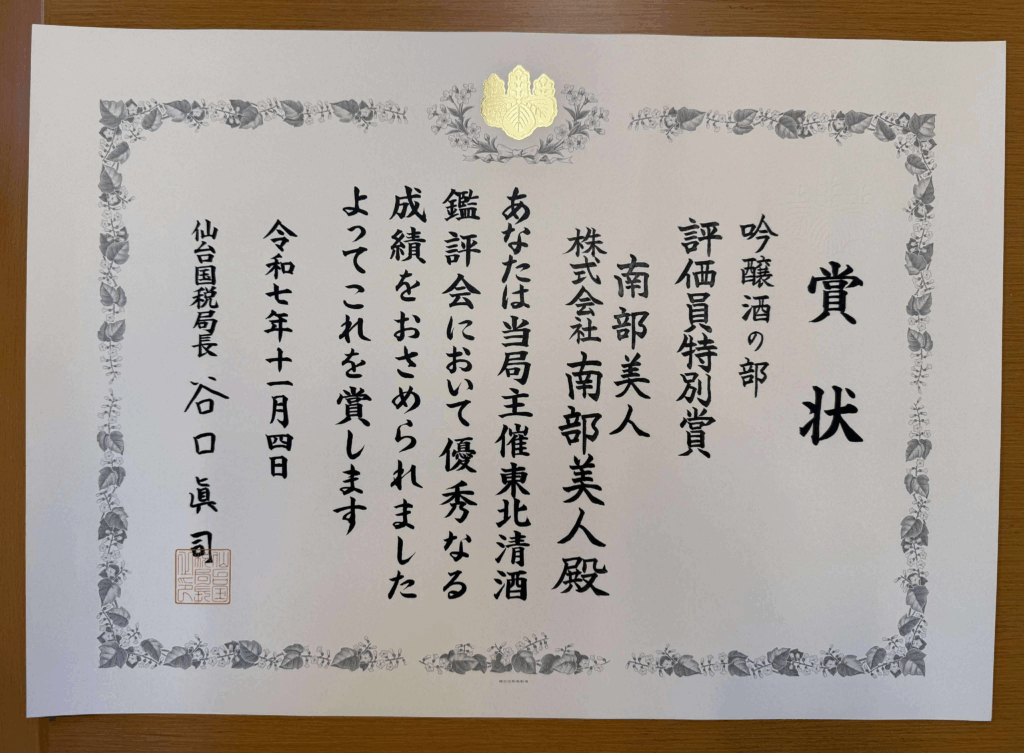 賞状
吟醸酒の部
評価員特別賞
南部美人
株式会社南部美人殿
あなたは当局主催東北清酒
鑑評会において優秀なる
成績をおさめられました
よってこれを賞します
令和七年十一月四日
仙台国税局長 谷口眞司